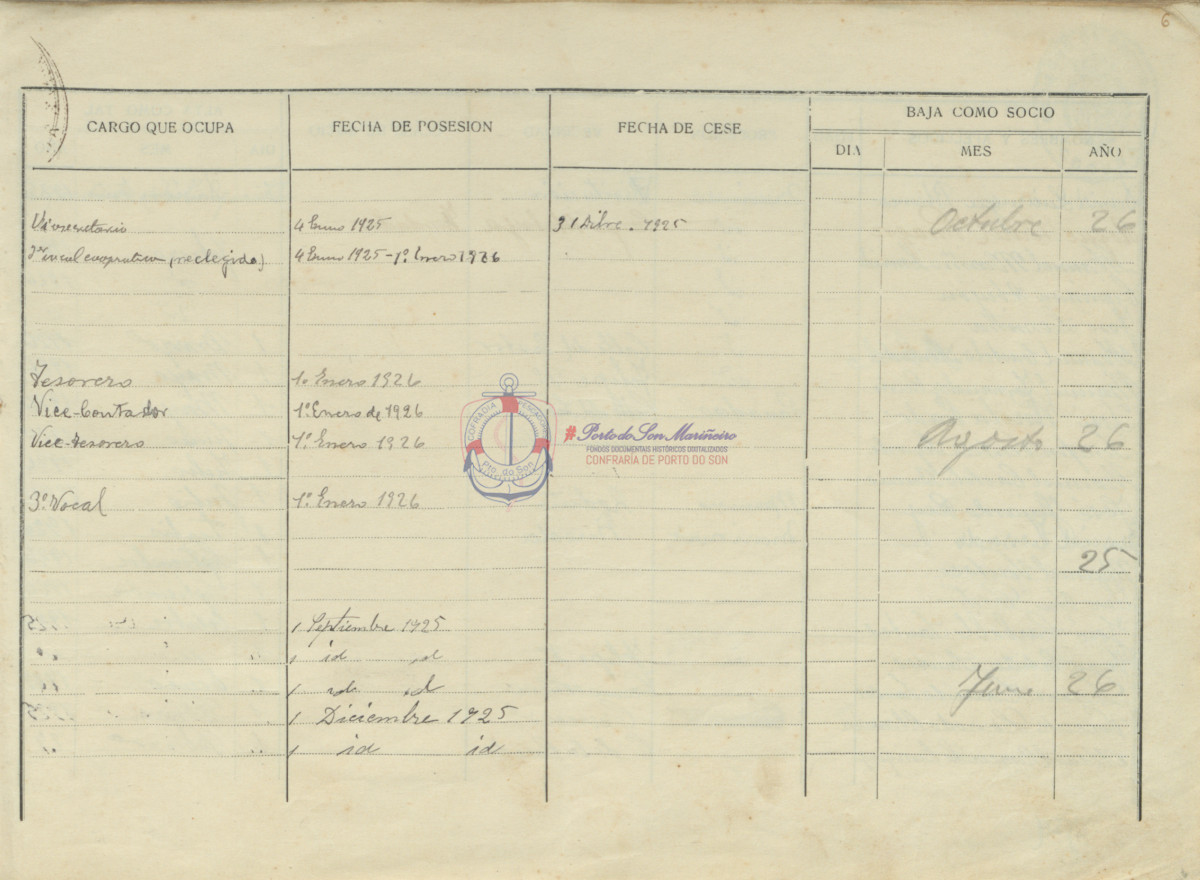 6
CARGO QUE OCUPA FECHA DE POSESION FECHA DE CESE BAJA COMO SOCIO
DIA MES AÑO
Vicesecretario 4 Enero 1925 31 Dibre. 1925 Octubre 26
vocal cooperativa (reelegido) 4 Enero 1925-1º Enero 1926
Tesorero 1º Enero 1926
Vice-Contador 1º Enero de 1926
Vice-tesorero 1º Enero 1926 Agosto 26
3º Vocal 1º Enero 1926
25
1 Septiembre 1925
1 id id
1 id id 26
1 Diciembre 1925
1 id id
COFRADIA PESCADORES
Pto. do Son
#Porto do Son Mariñeiro
FONDOS DOCUMENTAIS HISTÓRICOS DIXITALIZADOS
CONFRARÍA DE PORTO DO SON